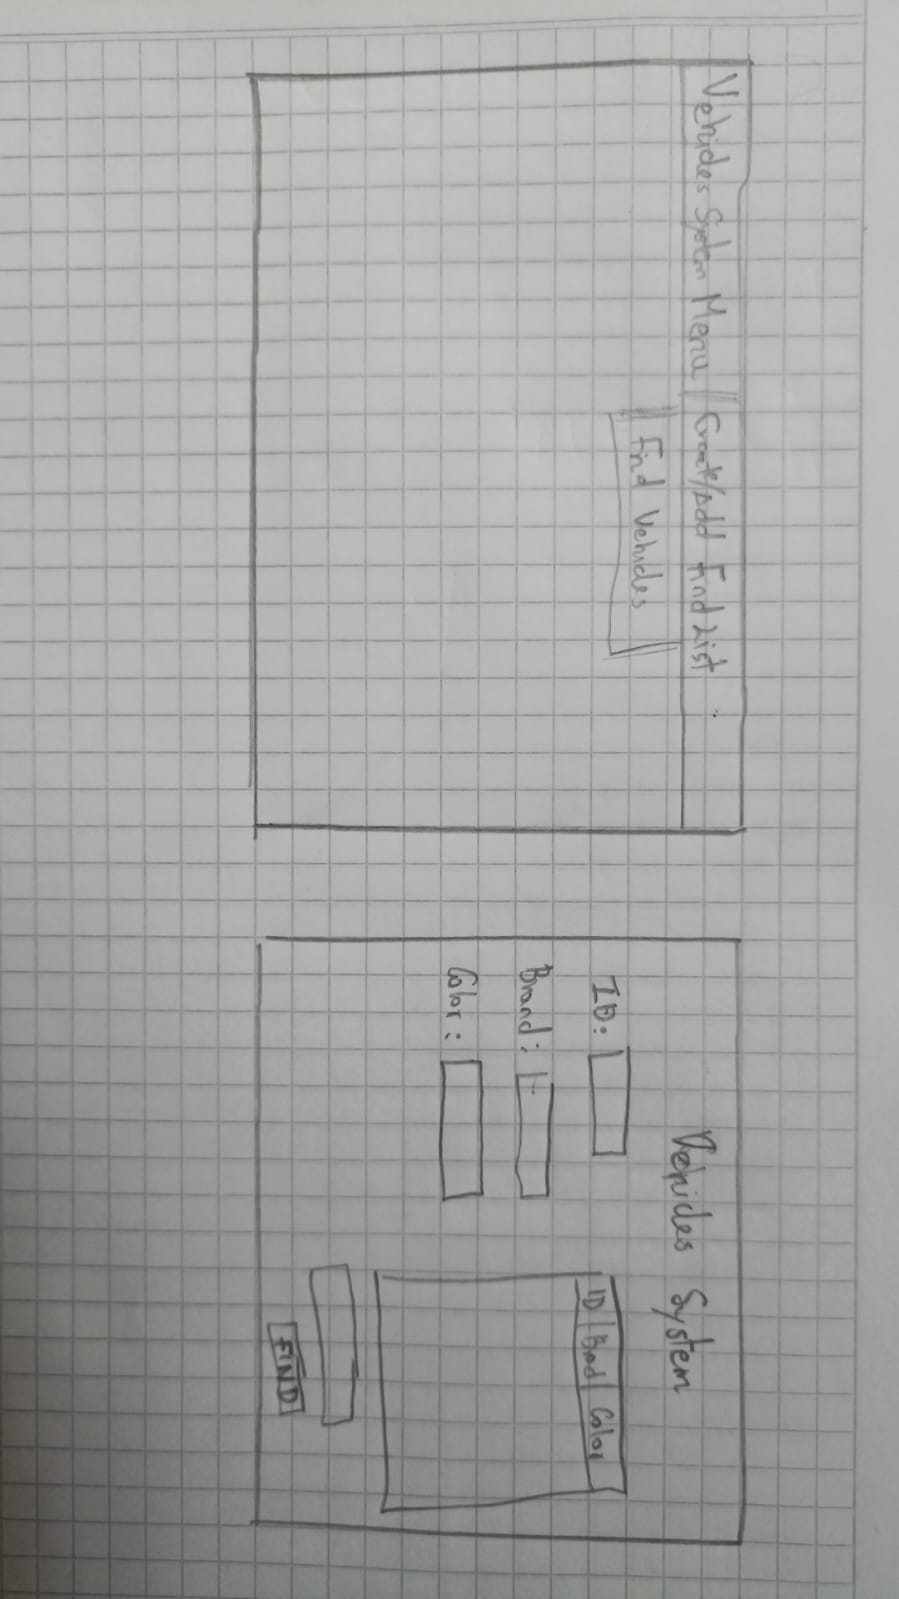 Vehicles System Menu Create/Add Find List
Find Vehicles
Vehicles System
ID:
Brand:
Color:
ID Brad Color
FIND